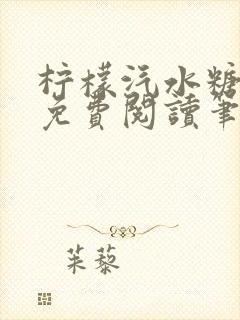 柠檬汽水糖
免費閱讀筆
茱藜